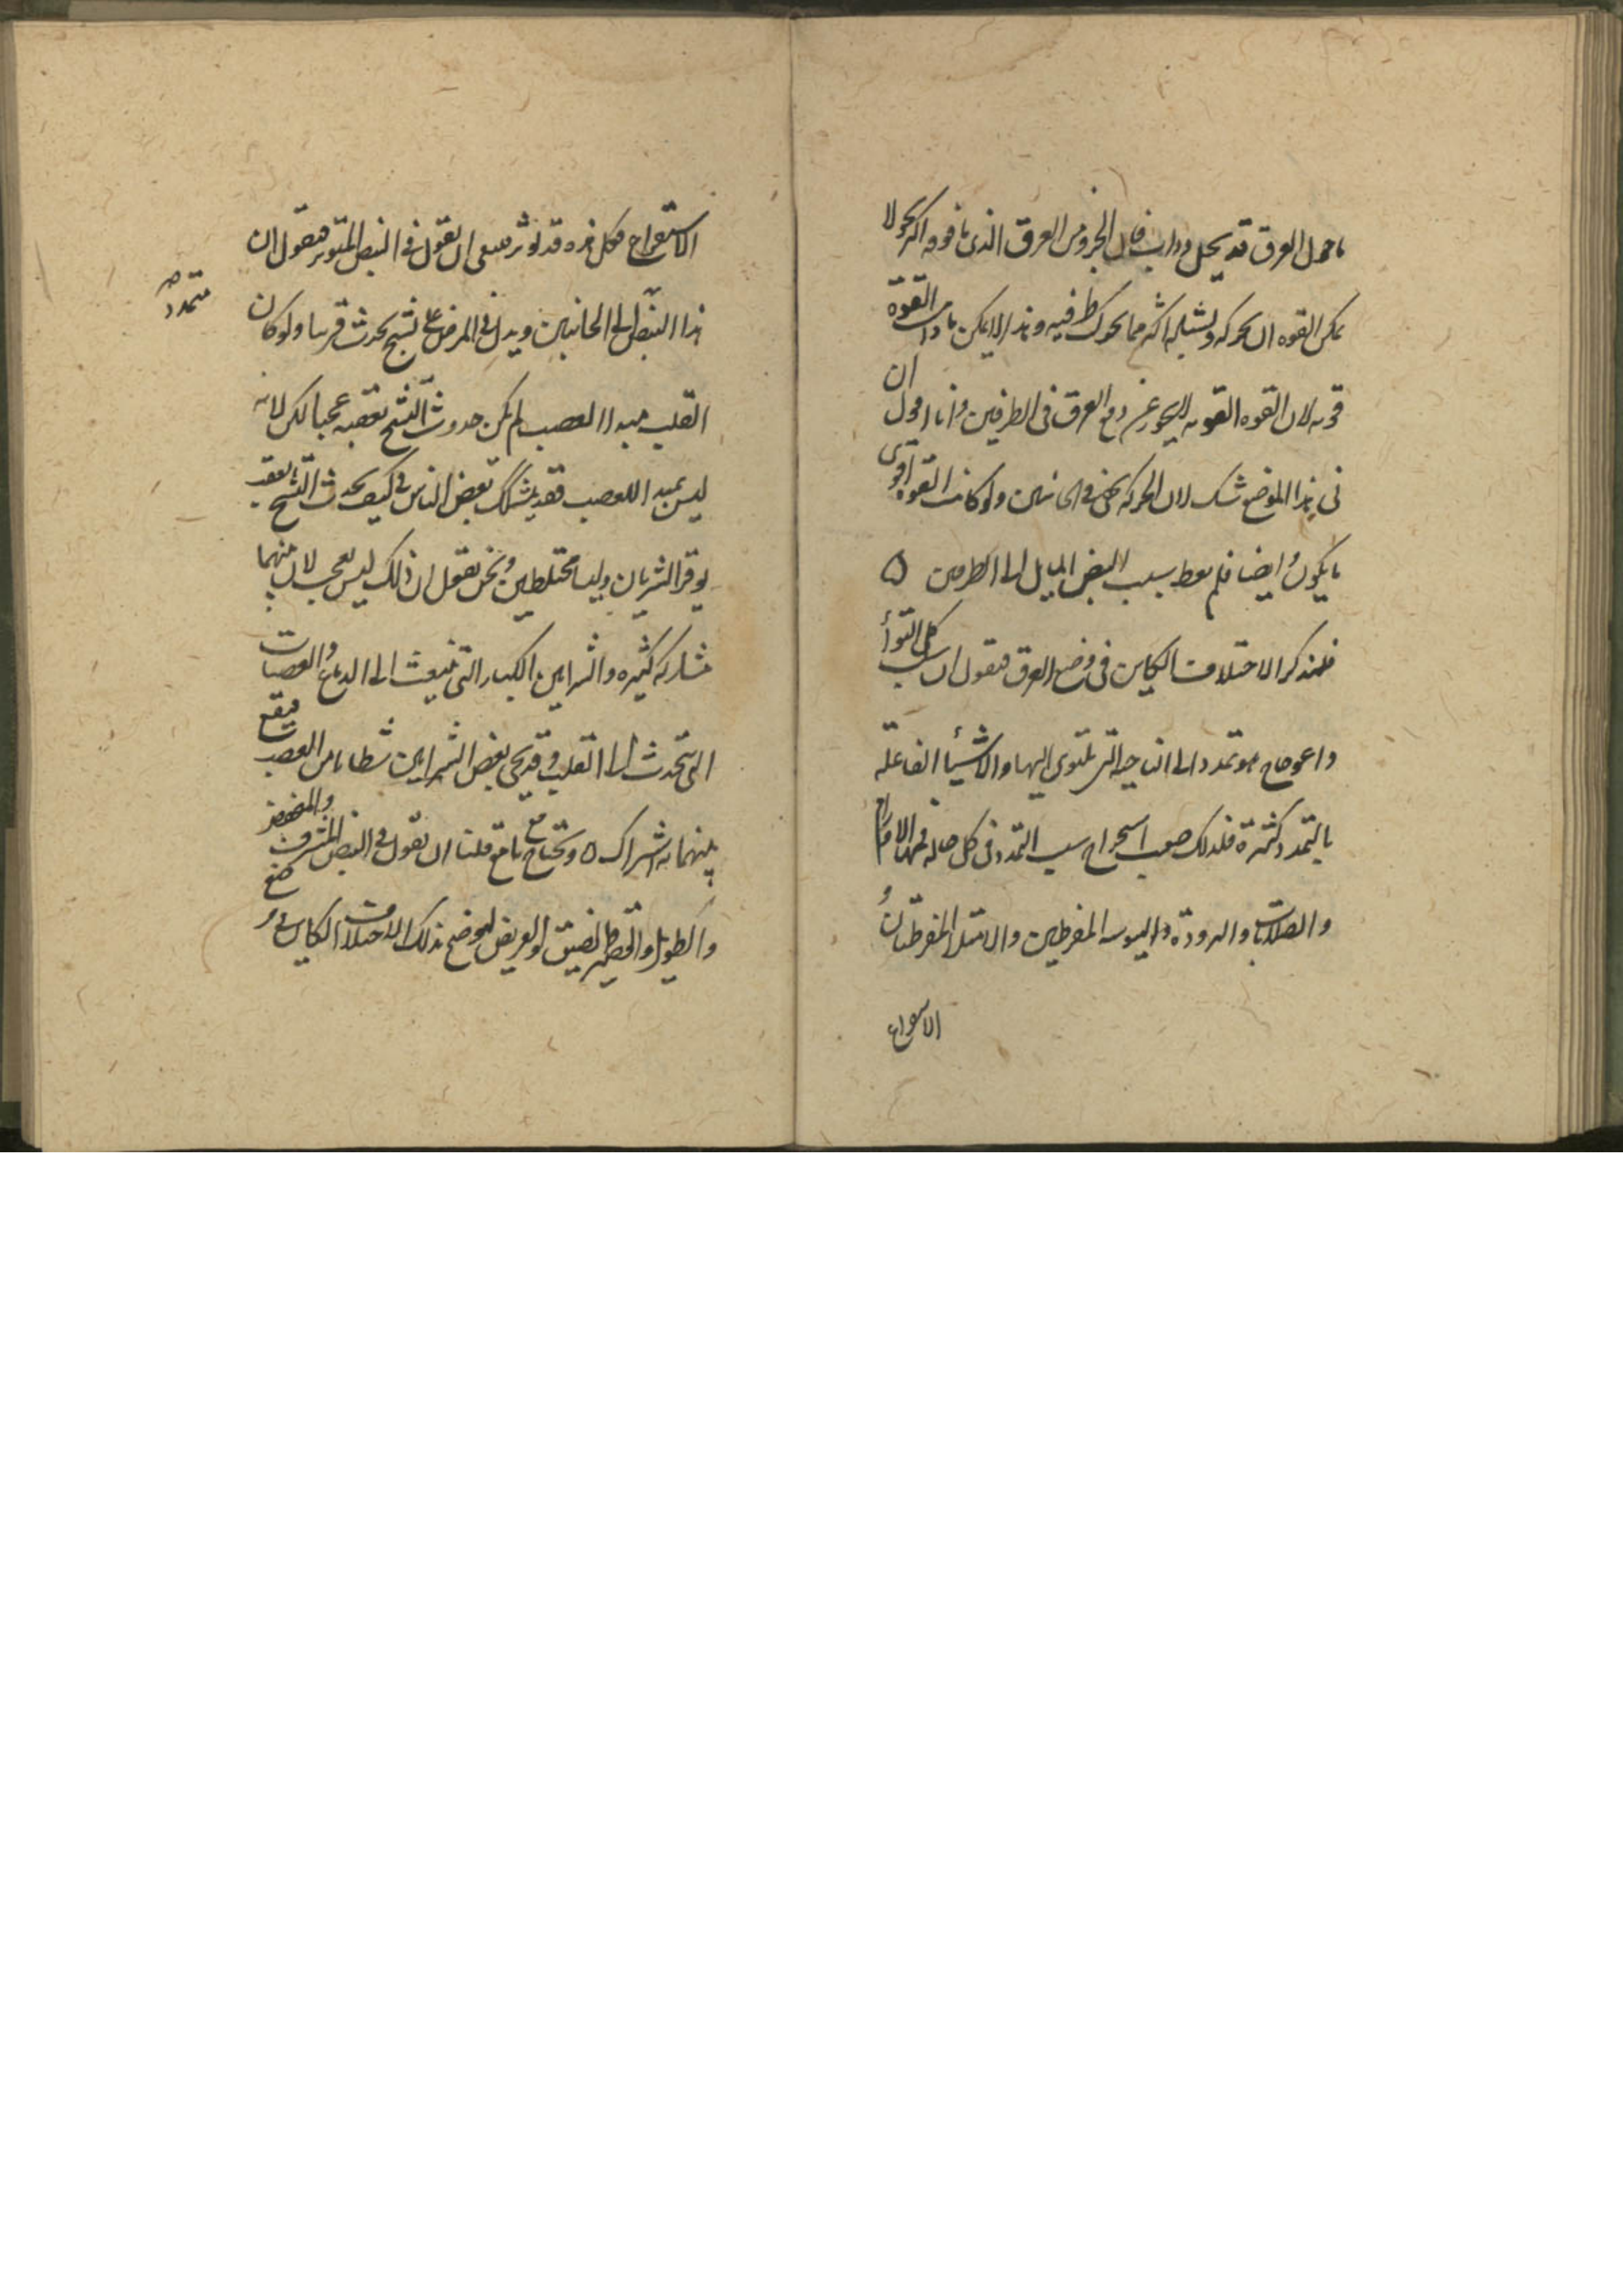 ما حول العرق قد يحل وذاب فان الجزو من العرق الذى ما فوقه اكثر نحولا
يمكن القوه ان تحركه وتشيله اكثر مما تحرك طرفيه وهذا لا يمكن ما دامت القوة
قويه لان القوه القويه لا تعجز عن رفع العرق فى الطرفين وانا اقول ان
فى هذا الموضع شك لان الحركه تخفى فى الجانبين ولو كانت القوه اقوى
ما يكون وايضا فلم يعط سبب النبض المايل الى الطرفين ه
فلنذكر الاختلاف الكاين فى وضع العرق فنقول ان سبب كل التوأ
واعوجاج هو تمدد الى الناحيه التى تلتوى اليها والاشيأ الفاعلة
بالتمدد كثيرة فلذلك صعب استخراج سبب التمدد فى كل حاله فمنها الاورام
والصلابة والبرودة واليبوسه المفرطين والامتلا المفرط وان
الاستفراغ
الاستفراغ فكل هذه قد توثر فينبغى ان نقول فى النبض المتوتر فنقول ان
متمدد
هذا النبض الى الجانبين ويدل فى المرض على تشنج يحدث قريبا ولو كان
القلب مبدا العصب لم يكن حدوث التشنج بعقبه عجبا لكن لانه
ليس بمبدا للعصب فقد يشكك بعض الناس فى كيف يحدث التشنج بعقب
توتر الشريان وليسا مختلطين ونحن نقول ان ذلك ليس بعجب لان بينهما
مشاركه كثيره والشرايين الكبار التى تنبعث الى الدماغ والعصبات
التى تحدث الى القلب وقد يجى بعض الشرايين شظايا من العصب فيقع
بينهما به اشتراك ه ونحتاج مع ما قلنا ان نقول فى النبض المشرف والمنخفض
والطويل والقصير والضيق والعريض ليوضح بذلك الاختلاف الكاين فى وضع